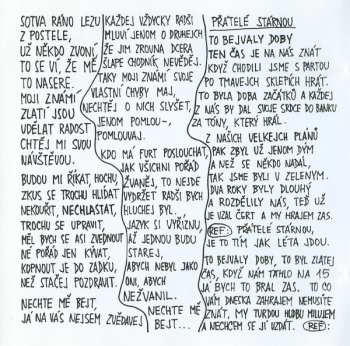 SOTVA RÁNO LEZU
Z POSTELE,
UŽ NĚKDO ZVONÍ,
TO SE VÍ, ŽE MĚ
TO NASERE.
MOJI ZNÁMÍ
ZLATÍ JSOU
UDĚLAT RADOST
CHTĚJ MI SVOU
NÁVŠTĚVOU.
BUDOU MI ŘÍKAT, HOCHU,
ZKUS SE TROCHU HLÍDAT
NEKOUŘIT, NECHLASTAT,
TROCHU SE UPRAVIT,
MĚL BYCH SE ASI ZVEDNOUT
NE POŘÁD JEN KÝVAT,
KOPNOUT JE DO ZADKU,
NEŽ STAČEJ POZDRAVIT.
NECHTE MĚ BEJT,
JÁ NA VÁS NEJSEM ZVĚDAVEJ
KAŽDEJ VŽDYCKY RADŠI
MLUVÍ JENOM O DRUHEJCH
ŽE JIM ZROVNA DCERA
ŠLAPE CHODNÍK NEVĚDĚJ.
TAKY MOJI ZNÁMÍ SVOJE
VLASTNÍ CHYBY MAJ,
NECHTĚJ O NICH SLYŠET,
JENOM POMLOU-,
POMLOUVAJ.
KDO MÁ FURT POSLOUCHAT,
JAK VŠICHNI POŘÁD
ŽVANĚJ, TO NEJDE
VYDRŽET RADŠI BYCH
HLUCHEJ BYL.
JAZYK SI VYŘÍZNU,
AŽ JEDNOU BUDU
STAREJ,
ABYCH NEBYL JAKO
ONI, ABYCH
NEŽVANIL.
NECHTE MĚ
BEJT...
PŘÁTELÉ STÁRNOU
TO BEJVALY DOBY
TEN ČAS JE NA NÁS ZNÁT
KDYŽ CHODILI JSME S PARTOU
PO TMAVEJCH SKLEPÍCH HRÁT.
TO BYLA DOBA ZAČÁTKŮ A KAŽDEJ
Z NÁS BY DAL SVOJE SRDCE DO BANKU
ZA TÓNY, KTERÝ HRÁL.
Z NAŠICH VELKEJCH PLÁNŮ
PAK ZBYL UŽ JENOM DÝM
A NEŽ SE NĚKDO NADÁL,
TAK JSME BYLI V ZELENÝM.
DVA ROKY BYLY DLOUHÝ
A ROZDĚLILY NÁS, TEĎ UŽ
JE VZAL ČERT A MY HRAJEM ZAS.
REF: PŘÁTELÉ STÁRNOU,
JE TO TÍM JAK LÉTA JDOU.
TO BEJVALY DOBY, TO BYL ZLATEJ
ČAS, KDYŽ NÁM TÁHLO NA 15
JÁ BYCH TO BRAL ZAS. TO CO
VÁM DNESKA ZAHRAJEM NEMUSÍTE
ZNÁT, MY TVRDOU HUDBU MILUJEM
A NECHCEM SE JÍ VZDÁT. REF: